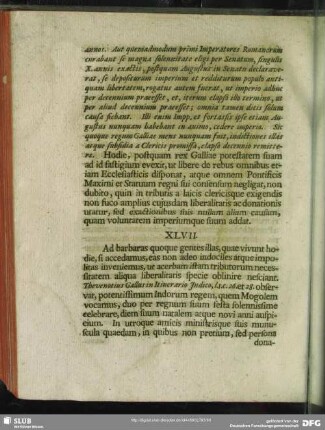 annos. Aut quemadmodum primi Imperatores Romanorum
curabant se magna solennitate eligi per Senatum, singulis
X. annis exactis, postquam Augustus in Senatu declarave-
rat, se depositurum imperium et redditurum populo anti-
quam libertatem, rogatus autem fuerat, ut imperio adhuc
per decennium præesset, et, iterum elapso isto termino, ut
per adhuc decennium præesset; omnia tamen dicis solum
causa fiebant. Illi enim Impp. et fortassis ipse etiam Au-
gustus nunquam habebant in animo, cedere imperio. Sic
quoque regum Galliæ mens nunquam fuit,
atque subsidia a Clericis promissa, elapso decennio remitte-
re. Hodie, postquam rex Galliæ potestatem suam
ad id fastigium evexit, ut libere de rebus omnibus et-
iam Ecclesiasticis disponat, arque omnem Pontificis
Maximi et Statuum regni sui consensum negligat, non
dubito, quin in tributis a laicis clericisque exigendis
non fuco amplius cujusdam liberalitatis ac donationis
utatur, sed exactionibus suis nullum alium causam,
quam voluntatem imperiumque suum addat.
XLVII.
Ad barbaras quoque gentes illas, quæ vivunt ho-
die, si accedamus, eas non adeo indociles atque impo-
litas inveniemus, ut acerbum istam tributorum neces-
sitatem aliqua liberalitatis specie oblinire nesciant.
Thevenotius Gallus in Itinerario Indico, l.1.c.26. et 28. obser-
vat, potentissimum Indorum regem, quem Mogolem
vocamus, duo per regnum suum festa solennissime
celebrare, diem suum natalem atque novi anni auspi-
cium. In utroque amicis ministrisque suis munu-
scula quædam, in quibus non pretium, sed persona
dona-
SLUB
Wir führen Wissen.
gefördert von der
Deutschen Forschungsgemeinschaft
DFG